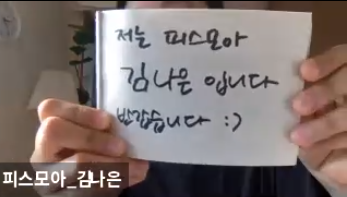 저는 피스모아
김나은 입니다
반갑습니다 :)
피스모아_김나은